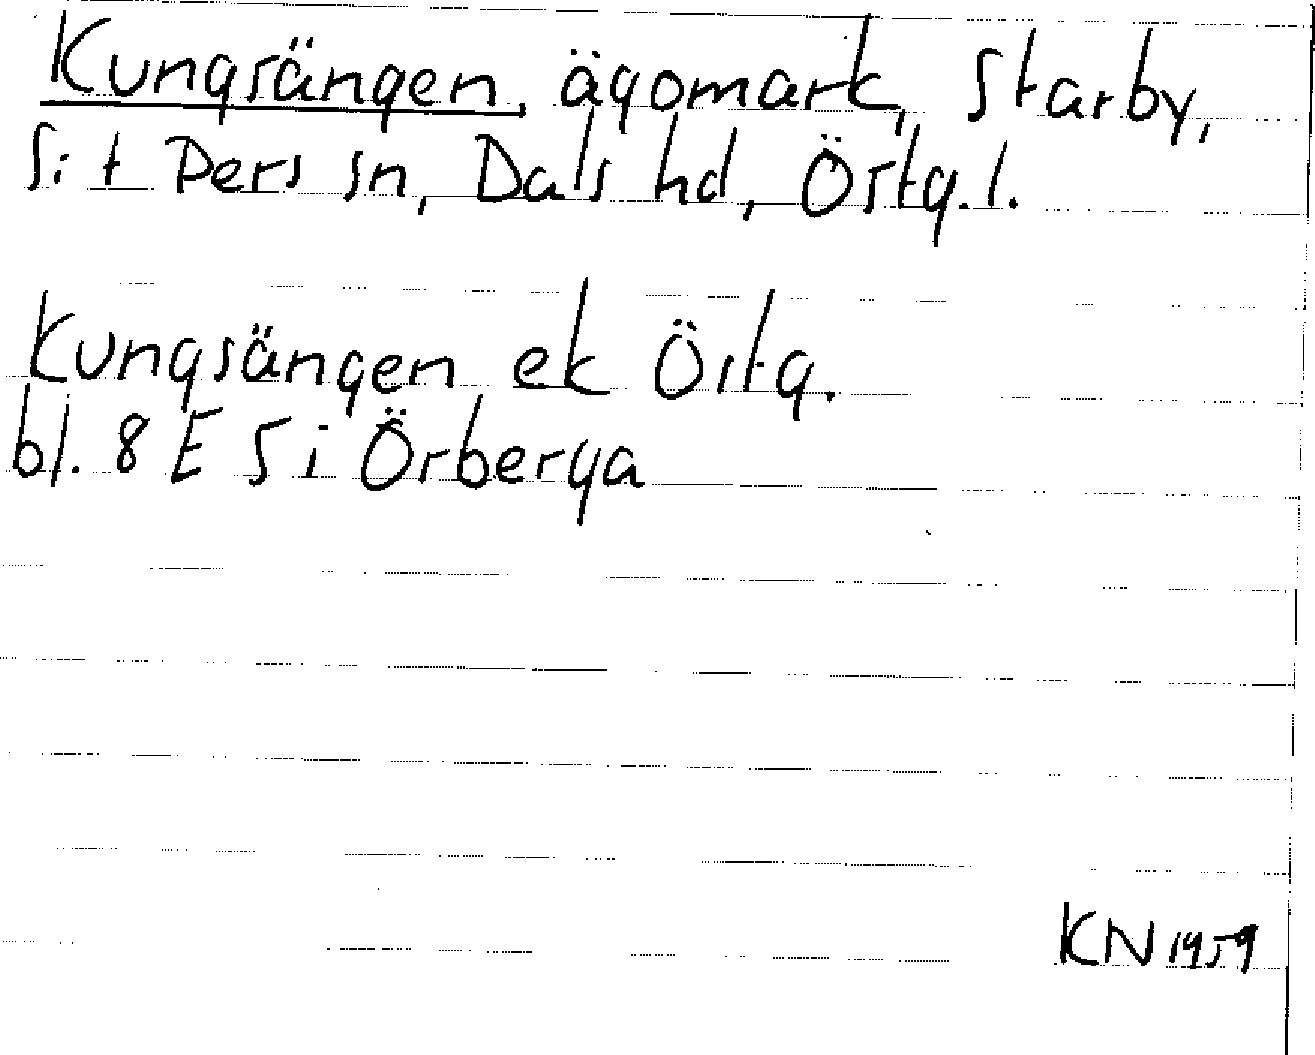 Kungsängen, ägomark, Starby,
S:t Pers sn, Dals hd, Östg. l.
Kungsängen ek Östg.
bl. 8 E 5 i Örberga
KN 1959